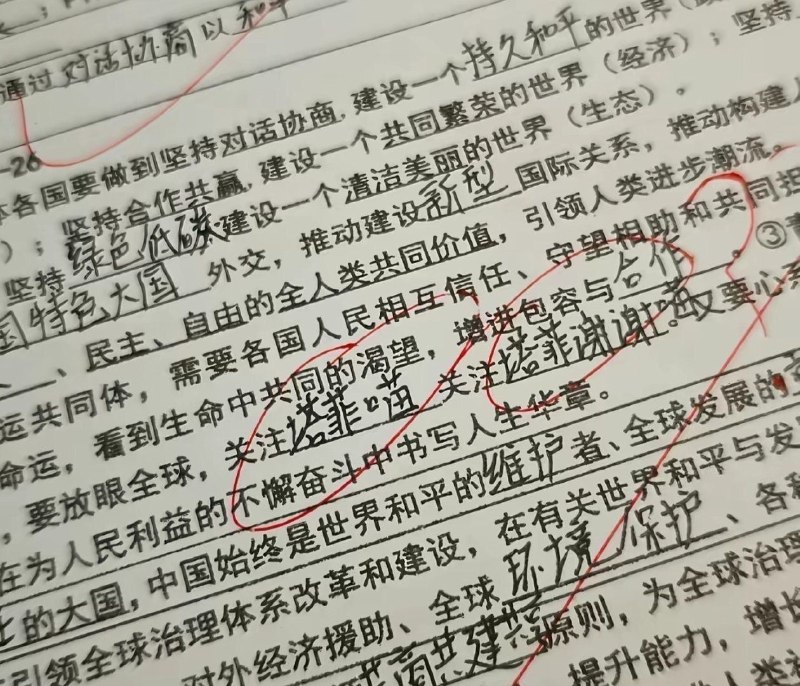 通过对话协商以和平
-26
各国要做到坚持对话协商,建设一个持久和平的世界
坚持合作共赢,建设一个共同繁荣的世界(经济);坚持
);坚持绿色低碳建设一个清洁美丽的世界(生态)。
国特色大国外交,推动建设新型国际关系,推动构建人
、民主、自由的全人类共同价值,引领人类进步潮流。
运共同体,需要各国人民相互信任、守望相助和共同担
命运,看到生命中共同的渴望,增进包容与合作。③青
,要放眼全球,关注塔菲の 关注塔菲谢谢喵。又要心系
在为人民利益的不懈奋斗中书写人生华章。
的大国,中国始终是世界和平的维护者、全球发展的
引领全球治理体系改革和建设,在有关世界和平与发
对外经济援助、全球环境保护、各种
商共建 原则,为全球治理
提升能力,增长